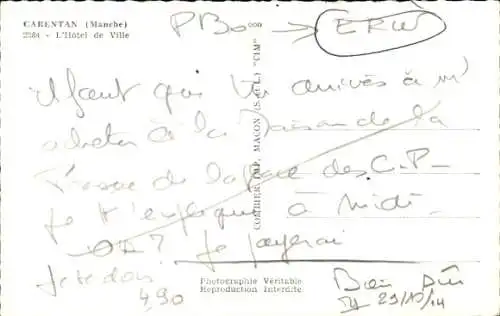 CARENTAN (Manche)
2364 - L'Hôtel de Ville
PBo → ERW
il faut que tu arrives à m'
acheter à la Maison de la
Presse de la Place des C.P-
Je t'explique à midi.
OK? Je payerai
Je te dois
4,90
COMBIER IMP. MACON (S.-&-L.) "CIM"
Photographie Véritable
Reproduction Interdite
Bien sûr